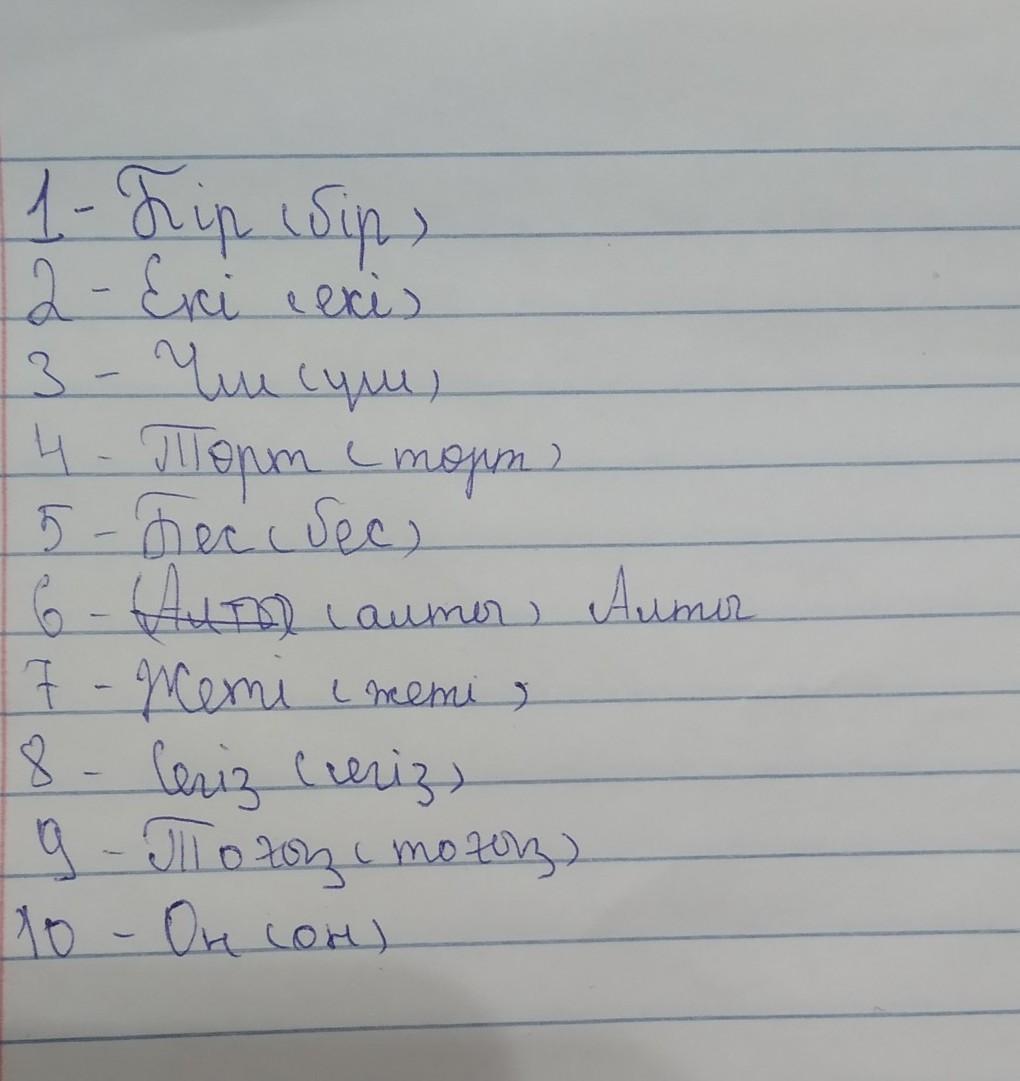 1 - Бір (бір)
2 - Екі (екі)
3 - Үш (үш)
4 - Төрт (төрт)
5 - Бес (бес)
6 - (Алты) (алты) Алты
7 - Жеті (жеті)
8 - Сегіз (сегіз)
9 - Тоғыз (тоғыз)
10 - Он (он)